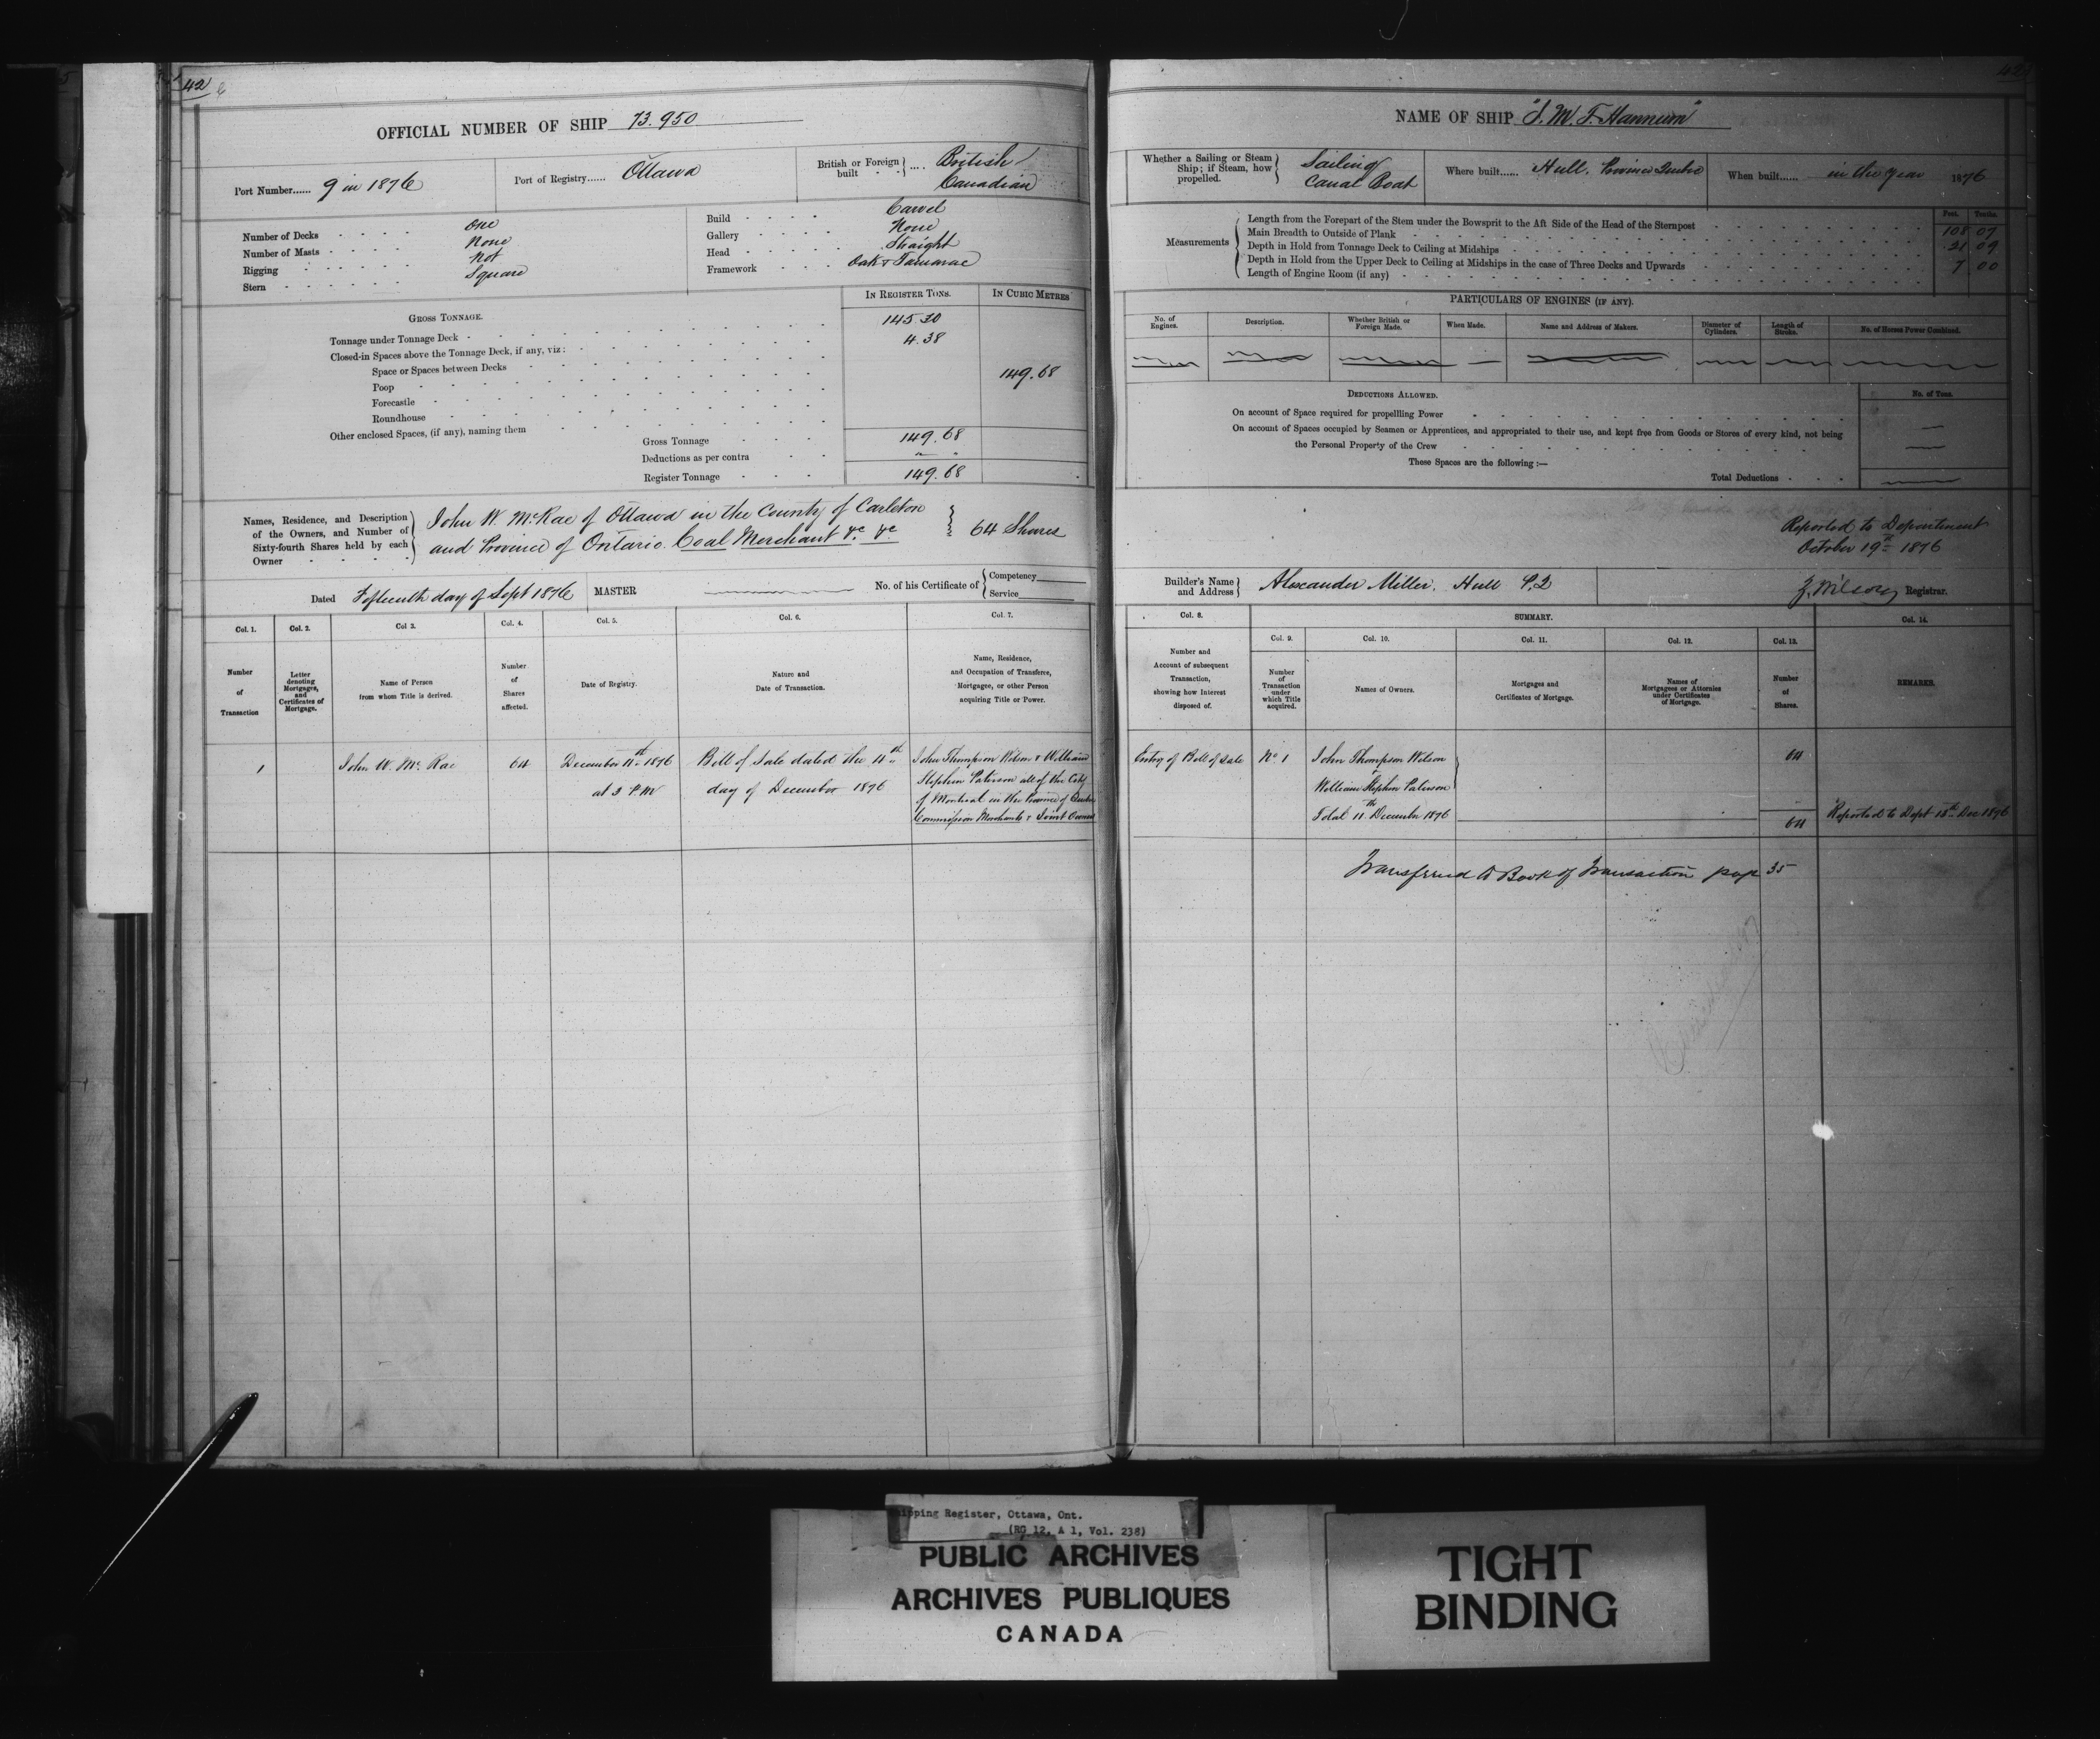 42
OFFICIAL NUMBER OF SHIP 73.950
Port Number...... 9 in 1876
Port of Registry...... Ottawa
British or Foreign built .... British Canadian
Number of Decks One
Number of Masts None
Rigging Not
Stern Square
Build Carvel
Gallery None
Head Straight
Framework Oak & Tamarac
IN REGISTER TONS. IN CUBIC METRES
GROSS TONNAGE.
Tonnage under Tonnage Deck 145.30
Closed-in Spaces above the Tonnage Deck, if any, viz: 4.38
Space or Spaces between Decks
149.68
Poop
Forecastle
Roundhouse
Other enclosed Spaces, (if any), naming them
Gross Tonnage 149.68
Deductions as per contra
Register Tonnage 149.68
Names, Residence, and Description of the Owners, and Number of Sixty-fourth Shares held by each Owner
John W. McRae of Ottawa in the County of Carleton
and Province of Ontario. Coal Merchant &c &c
64 Shares
Dated Fifteenth day of Sept 1876 MASTER No. of his Certificate of Competency Service
Col. 1. Col. 2. Col 3. Col. 4. Col. 5. Col. 6. Col. 7.
Number of Transaction
Letter denoting Mortgages, and Certificates of Mortgage.
Name of Person from whom Title is derived.
Number of Shares affected.
Date of Registry.
Nature and Date of Transaction.
Name, Residence, and Occupation of Transferee, Mortgagee, or other Person acquiring Title or Power.
1 John W. Mc Rae 64
December 11th 1876
at 3 P.M
Bill of Sale dated the 11th
day of December 1876
John Thompson Wilson & William
Stephen Paterson all of the City
of Montreal in the Province of Quebec
Commission Merchants & Joint Owners
NAME OF SHIP "J. M. F. Hannum"
Whether a Sailing or Steam Ship; if Steam, how propelled. Sailing Canal Boat
Where built...... Hull. Province Quebec
When built...... in the year 1876
Measurements
Feet. Tenths.
Length from the Forepart of the Stem under the Bowsprit to the Aft Side of the Head of the Sternpost 108 07
Main Breadth to Outside of Plank 21 09
Depth in Hold from Tonnage Deck to Ceiling at Midships 7 00
Depth in Hold from the Upper Deck to Ceiling at Midships in the case of Three Decks and Upwards
Length of Engine Room (if any)
PARTICULARS OF ENGINES (IF ANY).
No. of Engines. Description. Whether British or Foreign Made. When Made. Name and Address of Makers. Diameter of Cylinders. Length of Stroke. No. of Horses Power Combined.
DEDUCTIONS ALLOWED. No. of Tons.
On account of Space required for propellling Power
On account of Spaces occupied by Seamen or Apprentices, and appropriated to their use, and kept free from Goods or Stores of every kind, not being
the Personal Property of the Crew
These Spaces are the following :—
Total Deductions
Reported to Department
October 19th 1876
Builder's Name and Address Alexander Miller. Hull P.Q
Z. Wilson Registrar.
Col. 8. SUMMARY. Col. 14.
Col. 9. Col. 10. Col. 11. Col. 12. Col. 13.
Number and Account of subsequent Transaction, showing how Interest disposed of.
Number of Transaction under which Title acquired.
Names of Owners.
Mortgages and Certificates of Mortgage.
Names of Mortgagees or Attornies under Certificates of Mortgage.
Number of Shares.
REMARKS.
Entry of Bill of Sale No 1 John Thompson Wilson 64
&
William Stephen Paterson
Total 11th December 1876 64 Reported to Dept 18th Dec 1876
Transferred to Book of Transaction page 35
Shipping Register, Ottawa, Ont.
(RG 12, A 1, Vol. 238)
PUBLIC ARCHIVES
ARCHIVES PUBLIQUES
CANADA
TIGHT
BINDING